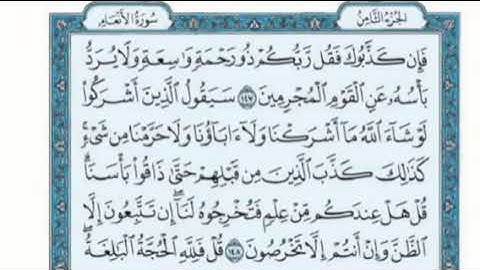 الجزء الثامن
سورة الأنعام
فَإِن كَذَّبُوكَ فَقُل رَّبُّكُمْ ذُو رَحْمَةٍ وَاسِعَةٍ وَلَا يُرَدُّ
بَأْسُهُ عَنِ الْقَوْمِ الْمُجْرِمِينَ ١٤٧ سَيَقُولُ الَّذِينَ أَشْرَكُوا
لَوْ شَاءَ اللَّهُ مَا أَشْرَكْنَا وَلَا ءَابَاؤُنَا وَلَا حَرَّمْنَا مِن شَيْءٍ
كَذَٰلِكَ كَذَّبَ الَّذِينَ مِن قَبْلِهِمْ حَتَّىٰ ذَاقُوا بَأْسَنَا
قُلْ هَلْ عِندَكُم مِّنْ عِلْمٍ فَتُخْرِجُوهُ لَنَا إِن تَتَّبِعُونَ إِلَّا
الظَّنَّ وَإِنْ أَنتُمْ إِلَّا تَخْرُصُونَ ١٤٨ قُلْ فَلِلَّهِ الْحُجَّةُ الْبَالِغَةُ